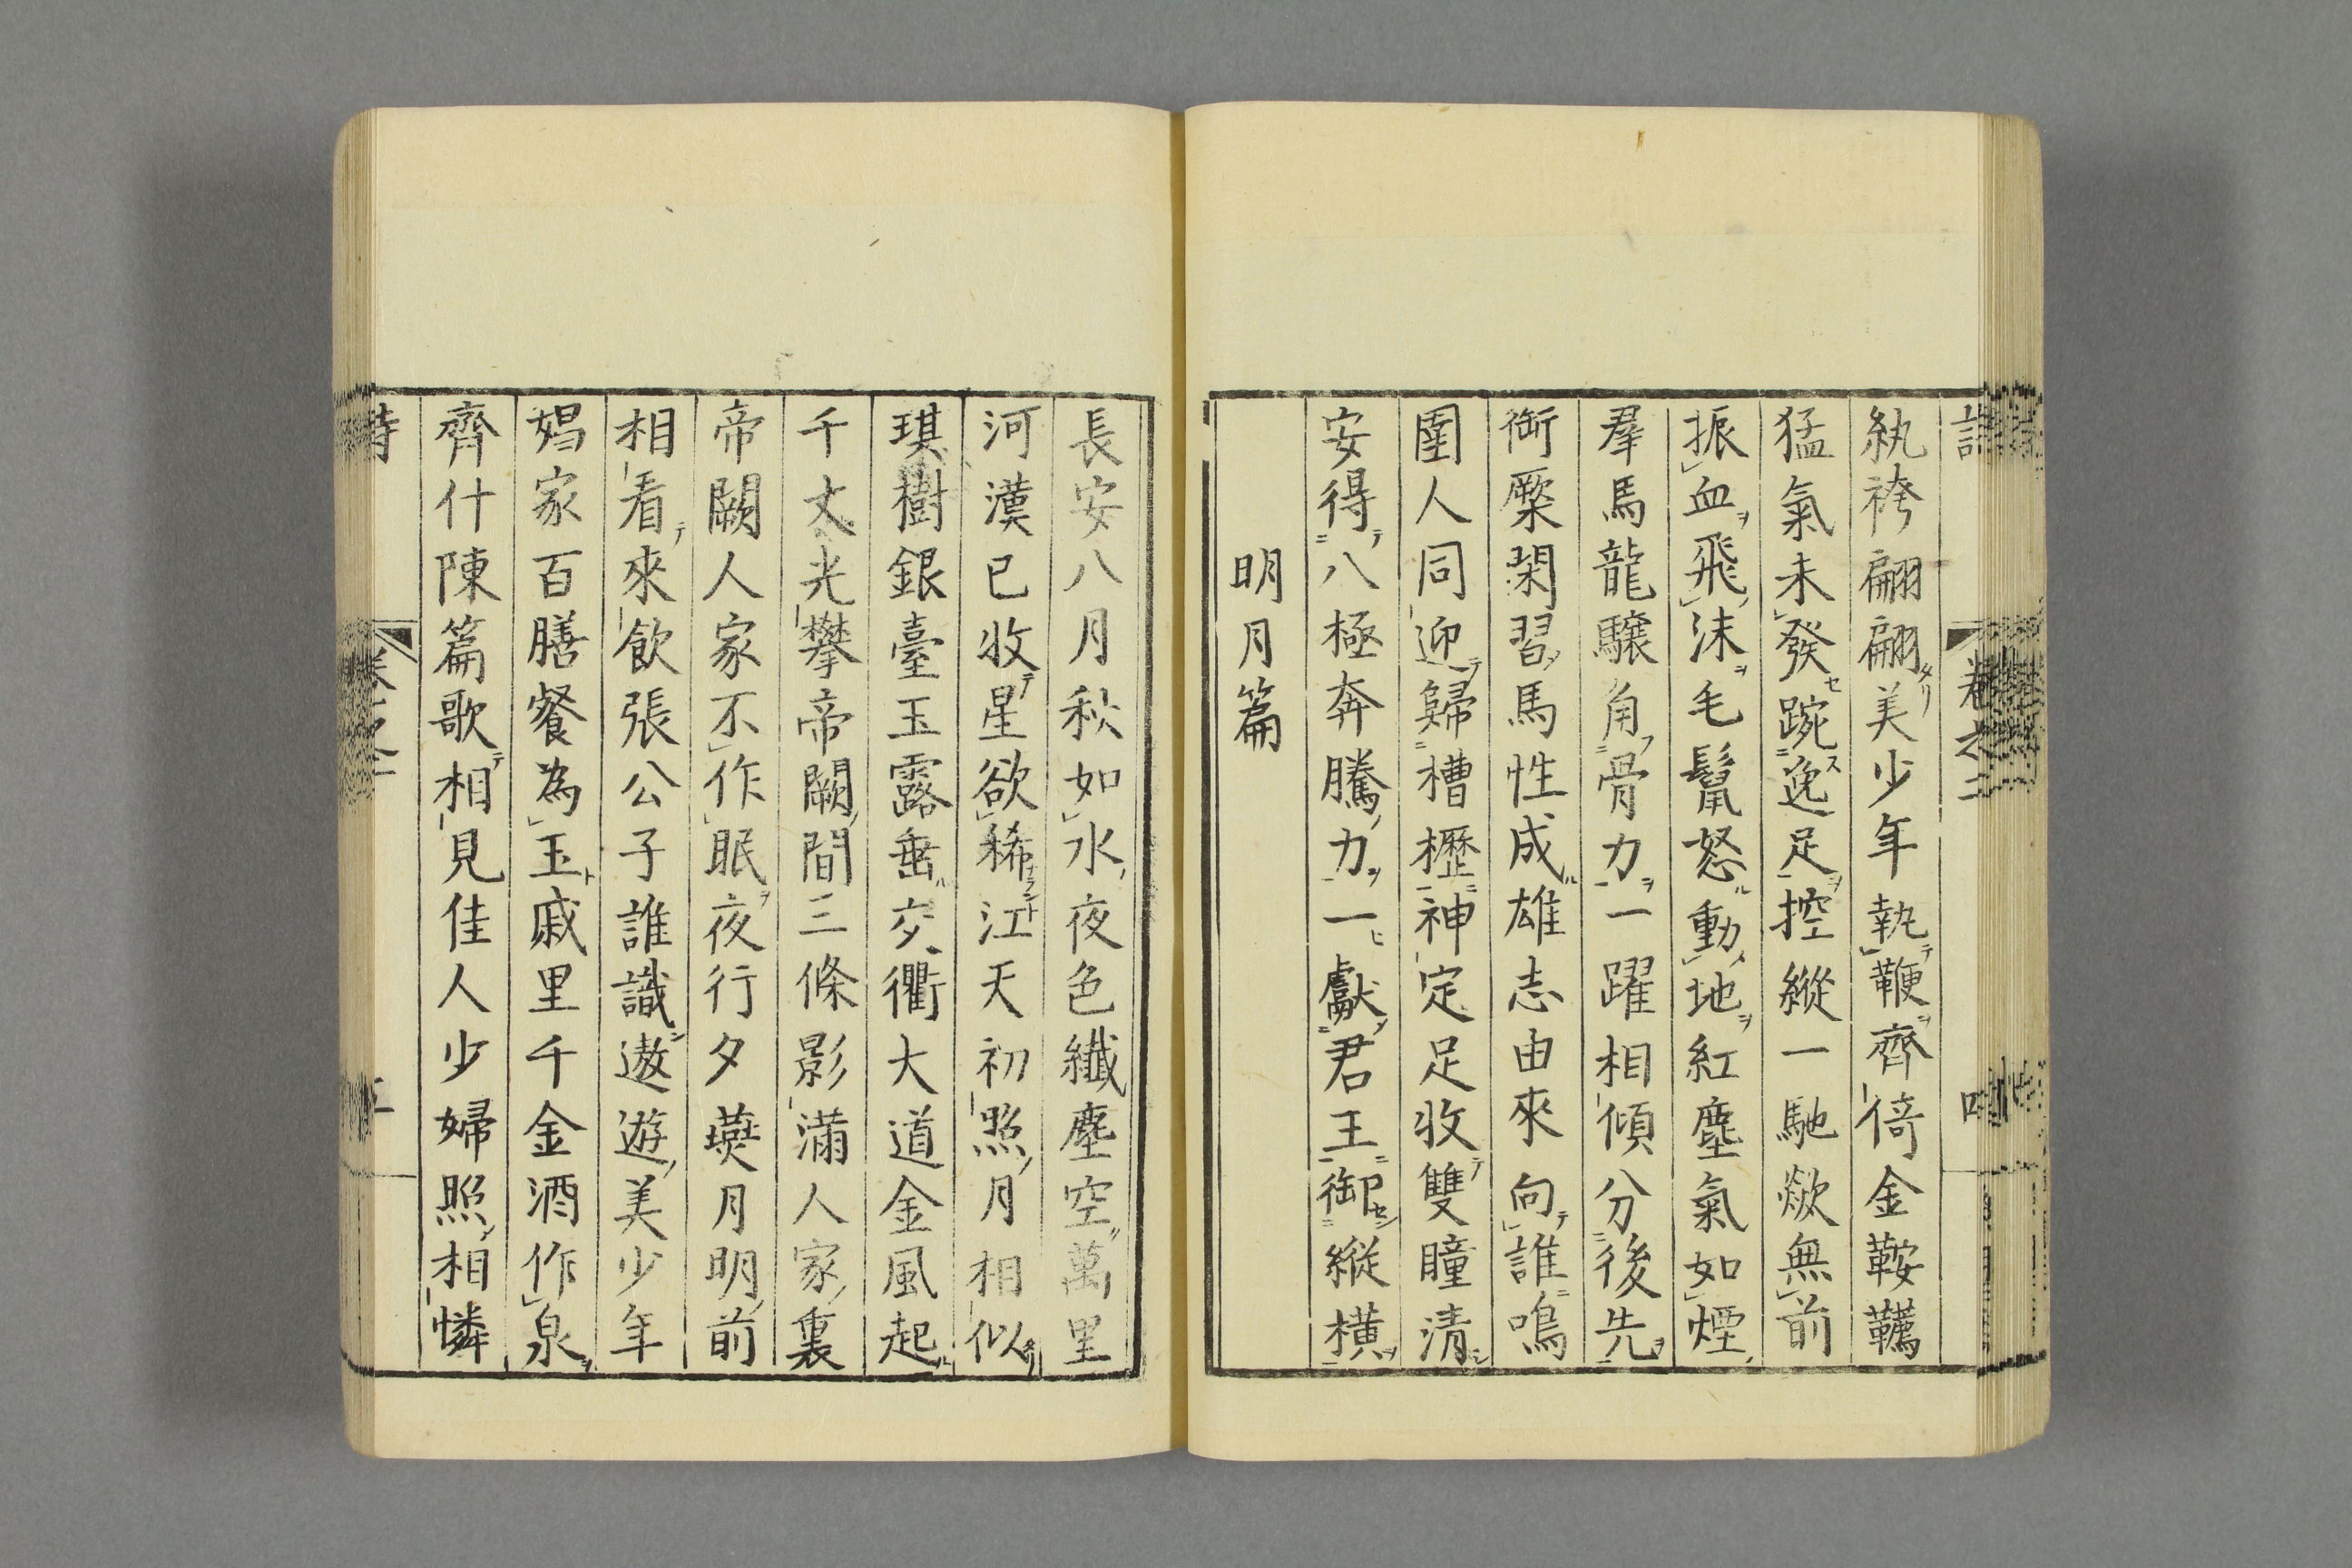 卷之二
紈袴翩翩美少年執鞭齊倚金鞍韉
猛氣未發踠逸足控縱一馳歘無前
振血飛沫毛鬣怒動地紅塵氣如煙
羣馬龍驤角骨力一躍相傾分後先
銜橜閑習馬性成雄志由來向誰鳴
圉人同迎歸槽櫪神定足收雙瞳清
安得八極奔騰力一獻君王御縱橫
明月篇
長安八月秋如水夜色纖塵空萬里
河漢已收星欲稀江天初照月相似
琪樹銀臺玉露垂交衢大道金風起
千丈光攀帝闕間三條影滿人家裏
帝闕人家不作眠夜行夕燕月明前
相看來飲張公子誰識遨遊美少年
娼家百膳餐為玉戚里千金酒作泉
齊什陳篇歌相見佳人少婦照相憐